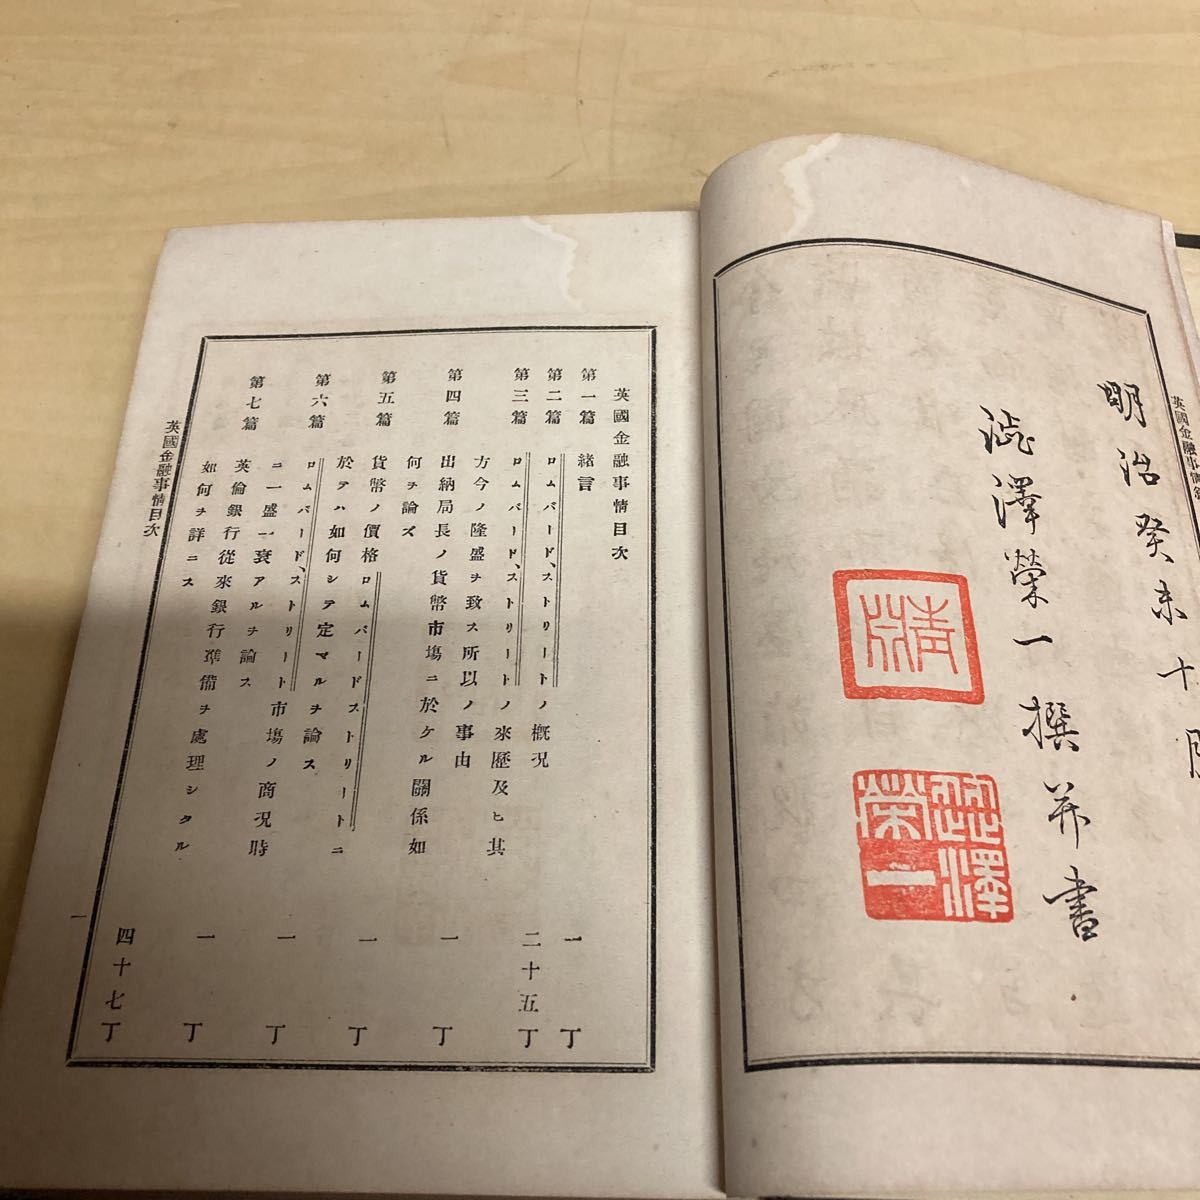 明治癸未十月
澁澤榮一撰并書
澁澤榮一
英國金融事情
英國金融事情目次
第一篇 緒言 一丁
第二篇 ロムバード、ストリートノ概況 二十五丁
第三篇 ロムバード、ストリートノ來歷及ヒ其
方今ノ隆盛ヲ致ス所以ノ事由 一丁
第四篇 出納局長ノ貨幣市塲ニ於ケル關係如
何ヲ論ズ 一丁
第五篇 貨幣ノ價格ロムバードストリートニ
於テハ如何シテ定マルヲ論ス 一丁
第六篇 ロムバード、ストリート市塲ノ商況時
ニ一盛一衰アルヲ論ス 一丁
第七篇 英倫銀行從來銀行準備ヲ處理シタル
如何ヲ詳ニス 四十七丁
英國金融事情目次
一